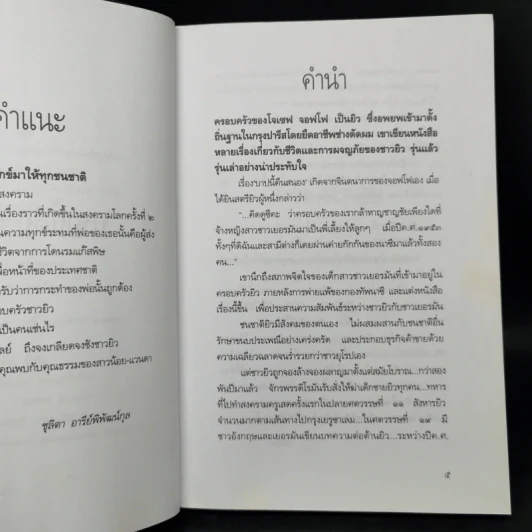 คำแนะ
กข์มาให้ทุกชนชาติ
สงคราม
นเรื่องราวที่เกิดขึ้นในสงครามโลกครั้งที่ ๒
นความทุกข์ระทมที่พ่อของเธอนั้นคือผู้ส่ง
ชีวิตจากการโดนรมแก๊สพิษ
พื่อหน้าที่ของประเทศชาติ
รับว่าการกระทำของพ่อนั้นถูกต้อง
อบครัวชาวยิว
เป็นคนเช่นไร
ลย์ ถึงจงเกลียดจงชังชาวยิว
คุณพบกับคุณธรรมของสาวน้อย-แวนดา
ชุลิตา อารีย์พิพัฒน์กุล
คำนำ
ครอบครัวของโจเซฟ จอฟโฟ เป็นยิว ซึ่งอพยพเข้ามาตั้ง
ถิ่นฐานในกรุงปารีสโดยยึดอาชีพช่างตัดผม เขาเขียนหนังสือ
หลายเรื่องเกี่ยวกับชีวิตและการผจญภัยของชาวยิว รุ่นแล้ว
รุ่นเล่าอย่างน่าประทับใจ
เรื่อง'บาปนี้คืนสนอง' เกิดจากจินตนาการของจอฟโฟเอง เมื่อ
ได้ยินสตรียิวผู้หนึ่งกล่าวว่า
"...คิดดูซีคะ ว่าครอบครัวของเรากล้าหาญชาญชัยเพียงใดที่
จ้างหญิงสาวชาวเยอรมันมาเป็นพี่เลี้ยงให้ลูกๆ เมื่อปีค.ศ.๑๙๔๖
ทั้งๆที่ดิฉันและสามีต่างก็เคยผ่านค่ายกักกันของนาซีมาแล้วทั้งสอง
คน..."
เขานึกถึงสภาพจิตใจของเด็กสาวชาวเยอรมันที่เข้ามาอยู่ใน
ครอบครัวยิว ภายหลังการพ่ายแพ้ของกองทัพนาซี และแต่งหนังสือ
เรื่องนี้ขึ้น เพื่อประสานความสัมพันธ์ระหว่างชาวยิวกับชาวเยอรมัน
ชนชาติยิวมีสังคมของตนเอง ไม่ผสมผสานกับชนชาติอื่น
รักษาขนบประเพณีอย่างเคร่งครัด และประกอบธุรกิจค้าขายด้วย
ความเฉลียวฉลาดจนร่ำรวยกว่าชาวยุโรปเอง
แต่ชาวยิวถูกจองล้างจองผลาญมาตั้งแต่สมัยโบราณ...กว่าสอง
พันปีมาแล้ว จักรพรรดิโรมันรับสั่งให้ฆ่าเด็กชายยิวทุกคน...ทหาร
ที่ไปทำสงครามครูเสดครั้งแรกในปลายศตวรรษที่ ๑๑ สังหารยิว
จำนวนมากตามเส้นทางไปกรุงเยรูซาเลม...ในศตวรรษที่ ๑๙ มี
ชาวอังกฤษและเยอรมันเขียนบทความต่อต้านยิว...ระหว่างปีค.ศ.
๕